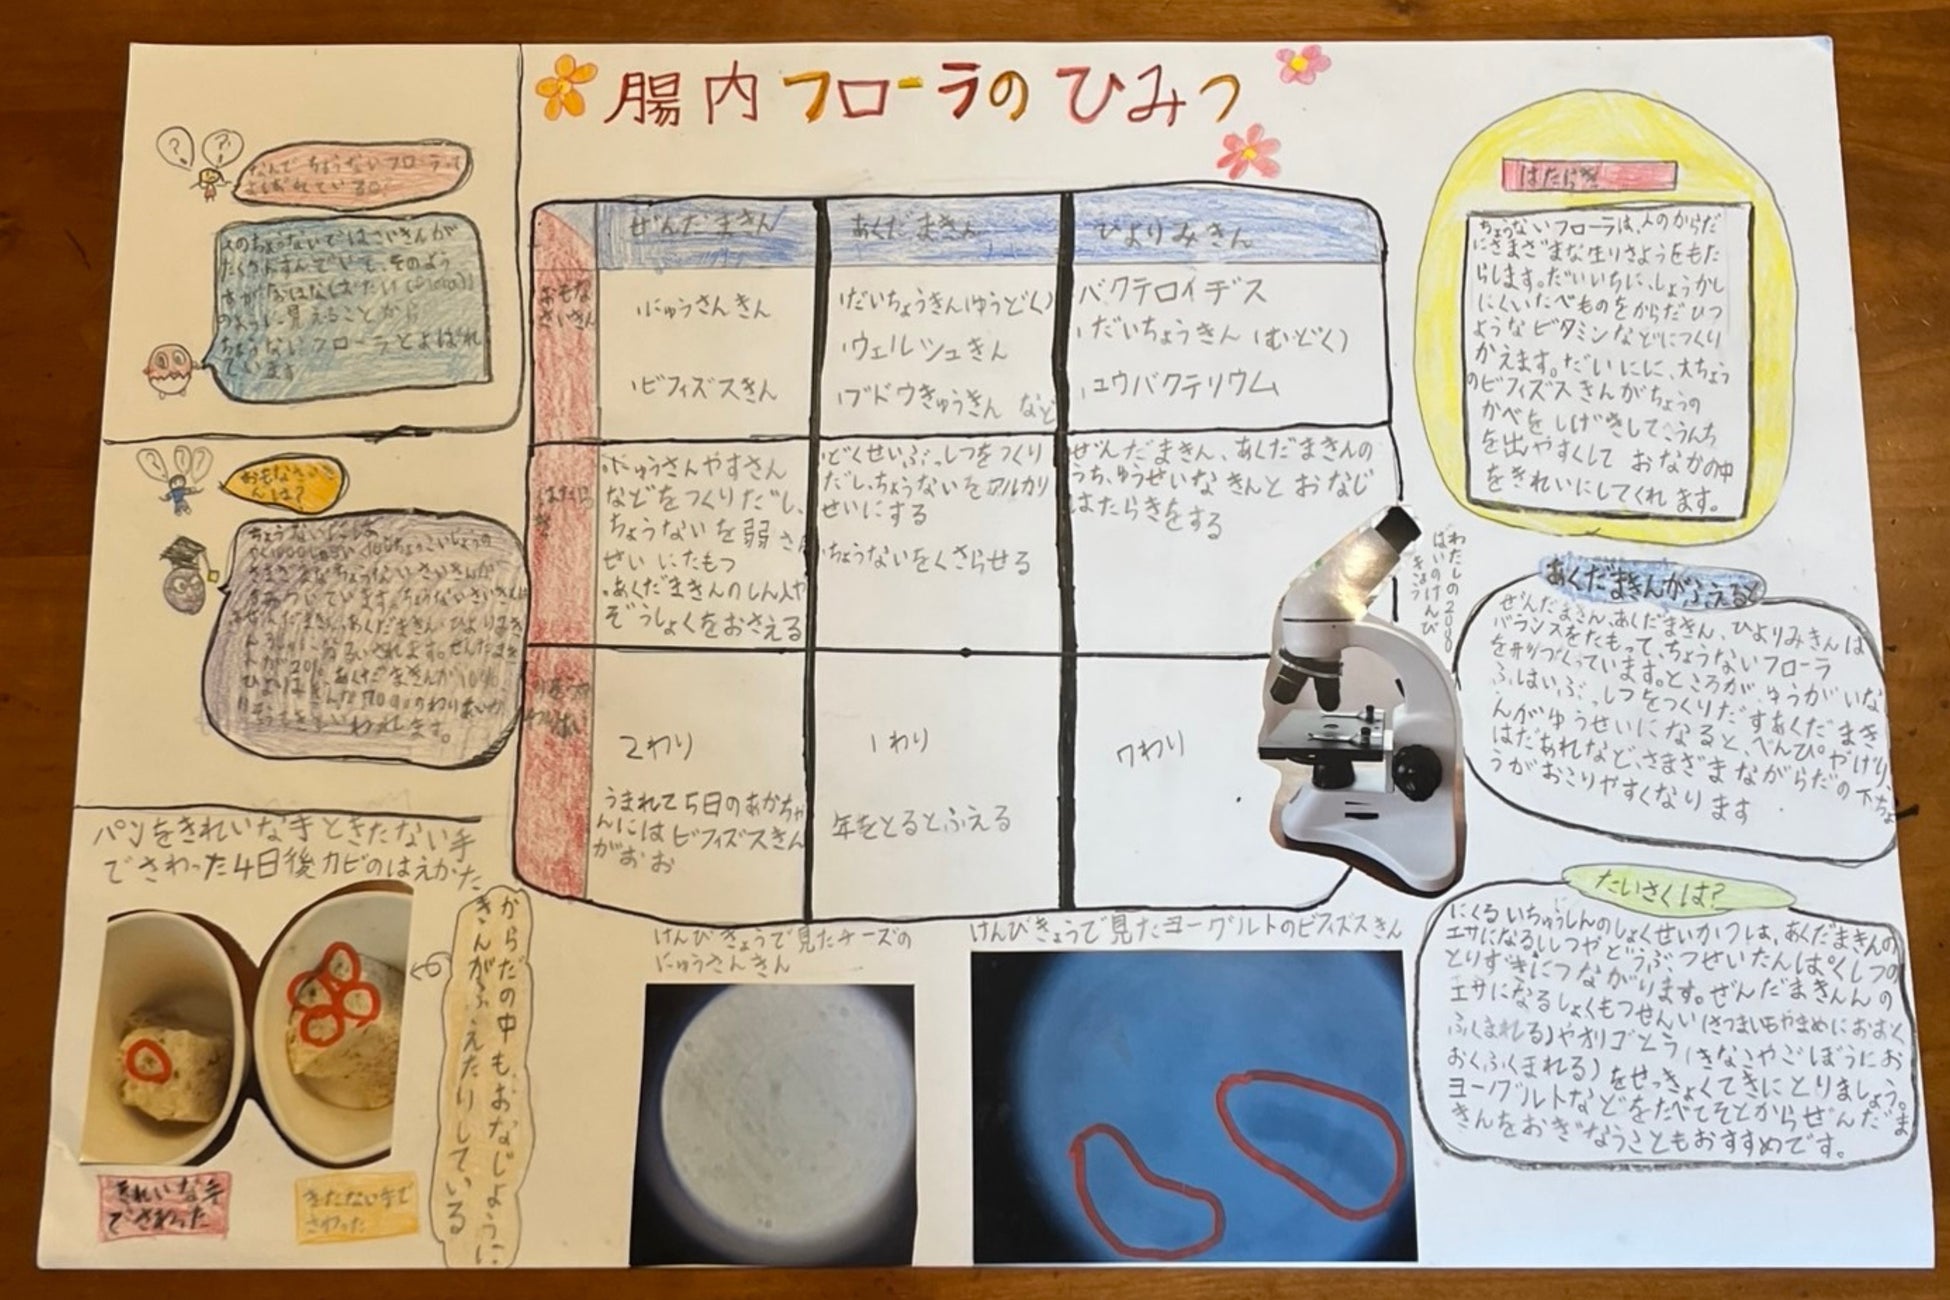 腸内フローラのひみつ
なんでちょうないフローラって
よばれている?
人のちょうないではさいきんが
たくさんすんでいて、そのよう
すが「おはなばたい
のように見えることから
ちょうないフローラとよばれ
ています
おもなさいき
んは?
さまざまなちょうないさいきんが
ぜんだまきん、あくだまきん、ひよりみき
んが20%、あくだまきんが10%
ぜんだまきん
あくだまきん
ひよりみきん
おもな
さいきん
・にゅうさんきん
・ビフィズスきん
・だいちょうきん(ゆうどく)
・ウェルシュきん
・ブドウきゅうきん など
・バクテロイデス
・だいちょうきん(むどく)
・ユウバクテリウム
はたら
き
・にゅうさんやすさん
などをつくりだし、
ちょうないを弱さん
せいにたもつ
・あくだまきんのしん入や
ぞうしょくをおさえる
・どくせいぶっしつをつくり
だし、ちょうないをアルカリ
せいにする
・ちょうないをくさらせる
ぜんだまきん、あくだまきんの
うち、ゆうせいなきんとおなじ
はたらきをする
2わり
うまれて5日のあかちゃ
んにはビフィズスきん
がおお
1わり
年をとるとふえる
7わり
わたしの2000
ばいのけんび
きょう
はたらき
ちょうないフローラは、人のからだ
にさまざまな生りさようをもた
らします。だいいちに、しょうかし
にくいたべものをからだひつ
ようなビタミンなどにつくり
かえます。だいにに、大ちょう
のビフィズスきんがちょうの
かべをしげきして、うんち
を出やすくしておなかの中
をきれいにしてくれます。
あくだまきんがふえると
ぜんだまきん、あくだまきん、ひよりみきんは
バランスをたもって、ちょうないフローラ
を形づくっています。ところが、ゆうがいな
ふはいぶっしつをつくりだすあくだまき
んがゆうせいになると、べんぴやげり、
はだあれなど、さまざまなからだの下ちょ
うがおこりやすくなります
たいさくは?
にくるいちゅうしんのしょくせいかつは、あくだまきんの
エサになるししつやどうぶつせいたんぱくしつの
とりすぎにつながります。ぜんだまきんんの
エサになるしょくもつせんい(さつまいもやまめにおおく
ふくまれる)やオリゴとう(きなこやごぼうにお
おくふくまれる)をせっきょくてきにとりましょう。
ヨーグルトなどをたべてそとからぜんだま
きんをおぎなうこともおすすめです。
パンをきれいな手ときたない手
でさわった4日後カビのはえかた
きれいな手
でさわった
きたない手で
さわった
からだの中もおなじように
きんがふえたりしている
けんびきょうで見たチーズの
にゅうさんきん
けんびきょうで見たヨーグルトのビフィズスきん